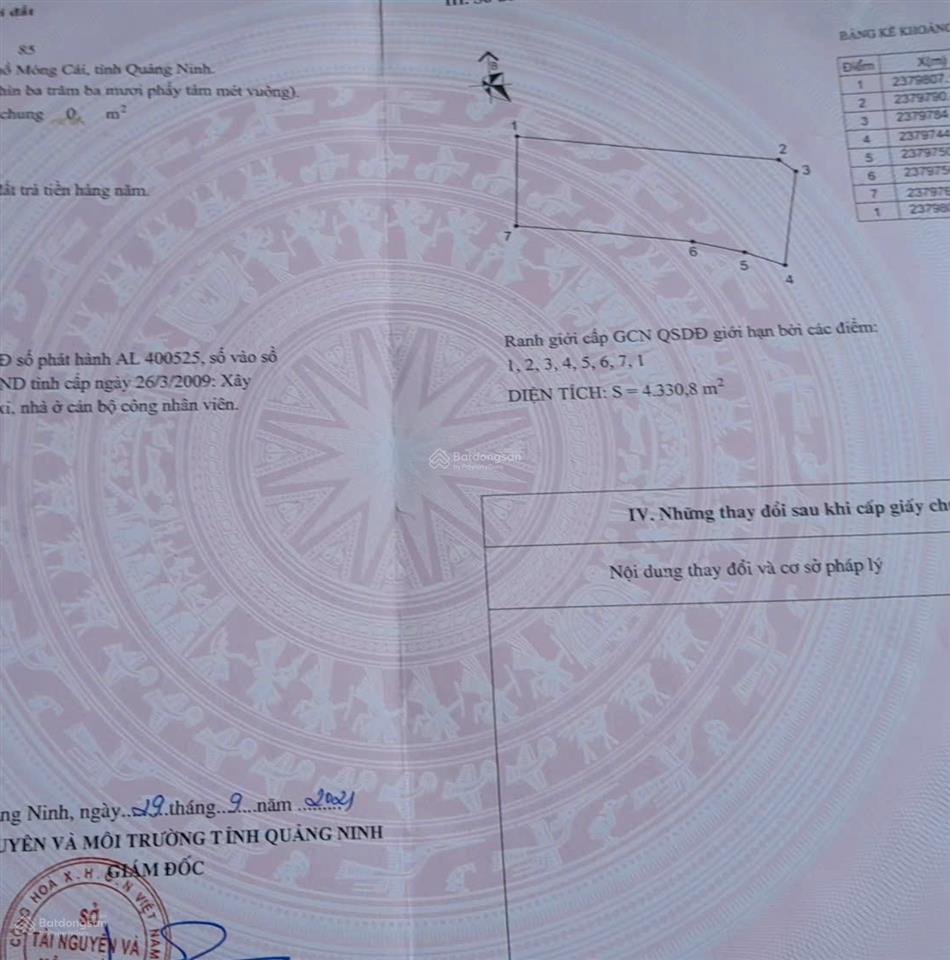 85
Móng Cái, tỉnh Quảng Ninh.
ba trăm ba mươi phẩy tám mét vuông).
chung 0 m²
trả tiền hàng năm.
số phát hành AL 400525, số vào sổ
tỉnh cấp ngày 26/3/2009: Xây
nhà ở cán bộ công nhân viên.
Ninh, ngày..29.tháng..9...năm ..2021
VÀ MÔI TRƯỜNG TỈNH QUẢNG NINH
GIÁM ĐỐC
SỞ
TÀI NGUYÊN VÀ
B
1
2
3
4
5
6
7
Ranh giới cấp GCN QSDĐ giới hạn bởi các điểm:
1, 2, 3, 4, 5, 6, 7, 1
DIỆN TÍCH: S = 4.330,8 m²
BẢNG KÊ KHOẢNG
Điểm X(m)
1 2379807
2 2379790
3 2379784
4
5
6
7
1
IV. Những thay đổi sau khi cấp giấy
Nội dung thay đổi và cơ sở pháp lý
Batdongsan
by PropertyGuru
Batdongsan